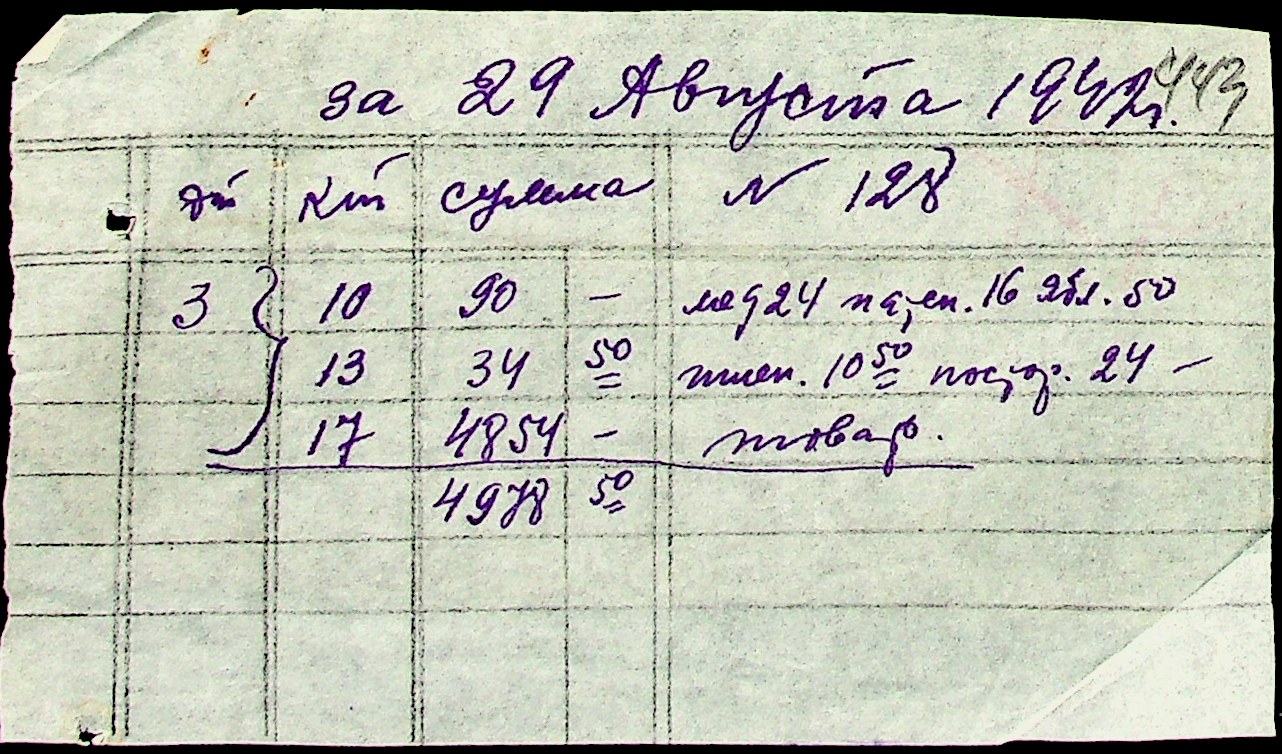 443
за 29 Августа 1942г.
дт кт сумма № 128
3 10 90 — мед 24 пчен. 16 Ябл. 50
13 34 50 пшен. 10 50 постор. 24 —
17 4854 — товар.
4978 50